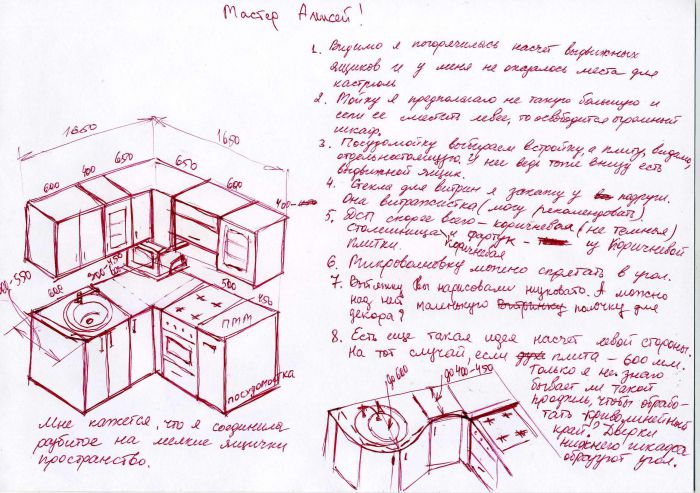 Мастер Алексей!
1. Видимо я погорячилась насчёт выдвижных
ящиков и у меня не оказалось места для
кастрюль
2. Мойку я предполагаю не такую большую и
если её сместить левее, то освободится огромный
шкаф.
3. Посудомойку выбираем встройку, а плиту, видимо,
отдельностоящую. У неё ведь тоже внизу есть
выдвижной ящик.
4. Стёкла для витрин я закажу у подруги.
Она витражистка (могу рекомендовать)
5. ДСП скорее всего - коричневая (не тёмная)
Столешница и фартук - из коричневой
коричневая
плитки.
6. Микроволновку можно спрятать в угол.
7. Вытяжку Вы нарисовали низковато. А можно
над ней маленькую полочку для
декора?
8. Есть ещё такая идея насчёт левой стороны.
На тот случай, если плита - 600 мм.
Только я не знаю
бывает ли такой
профиль, чтобы обрабо-
тать криволинейный
край? Дверки
нижнего шкафа
образуют угол.
1650
1650
600
400
650
650
600
400
400-450
600
500
450
ПММ
посудомойка
до 600
до 400-450
Мне кажется, что я соединила
разбитое на мелкие ящички
пространство.